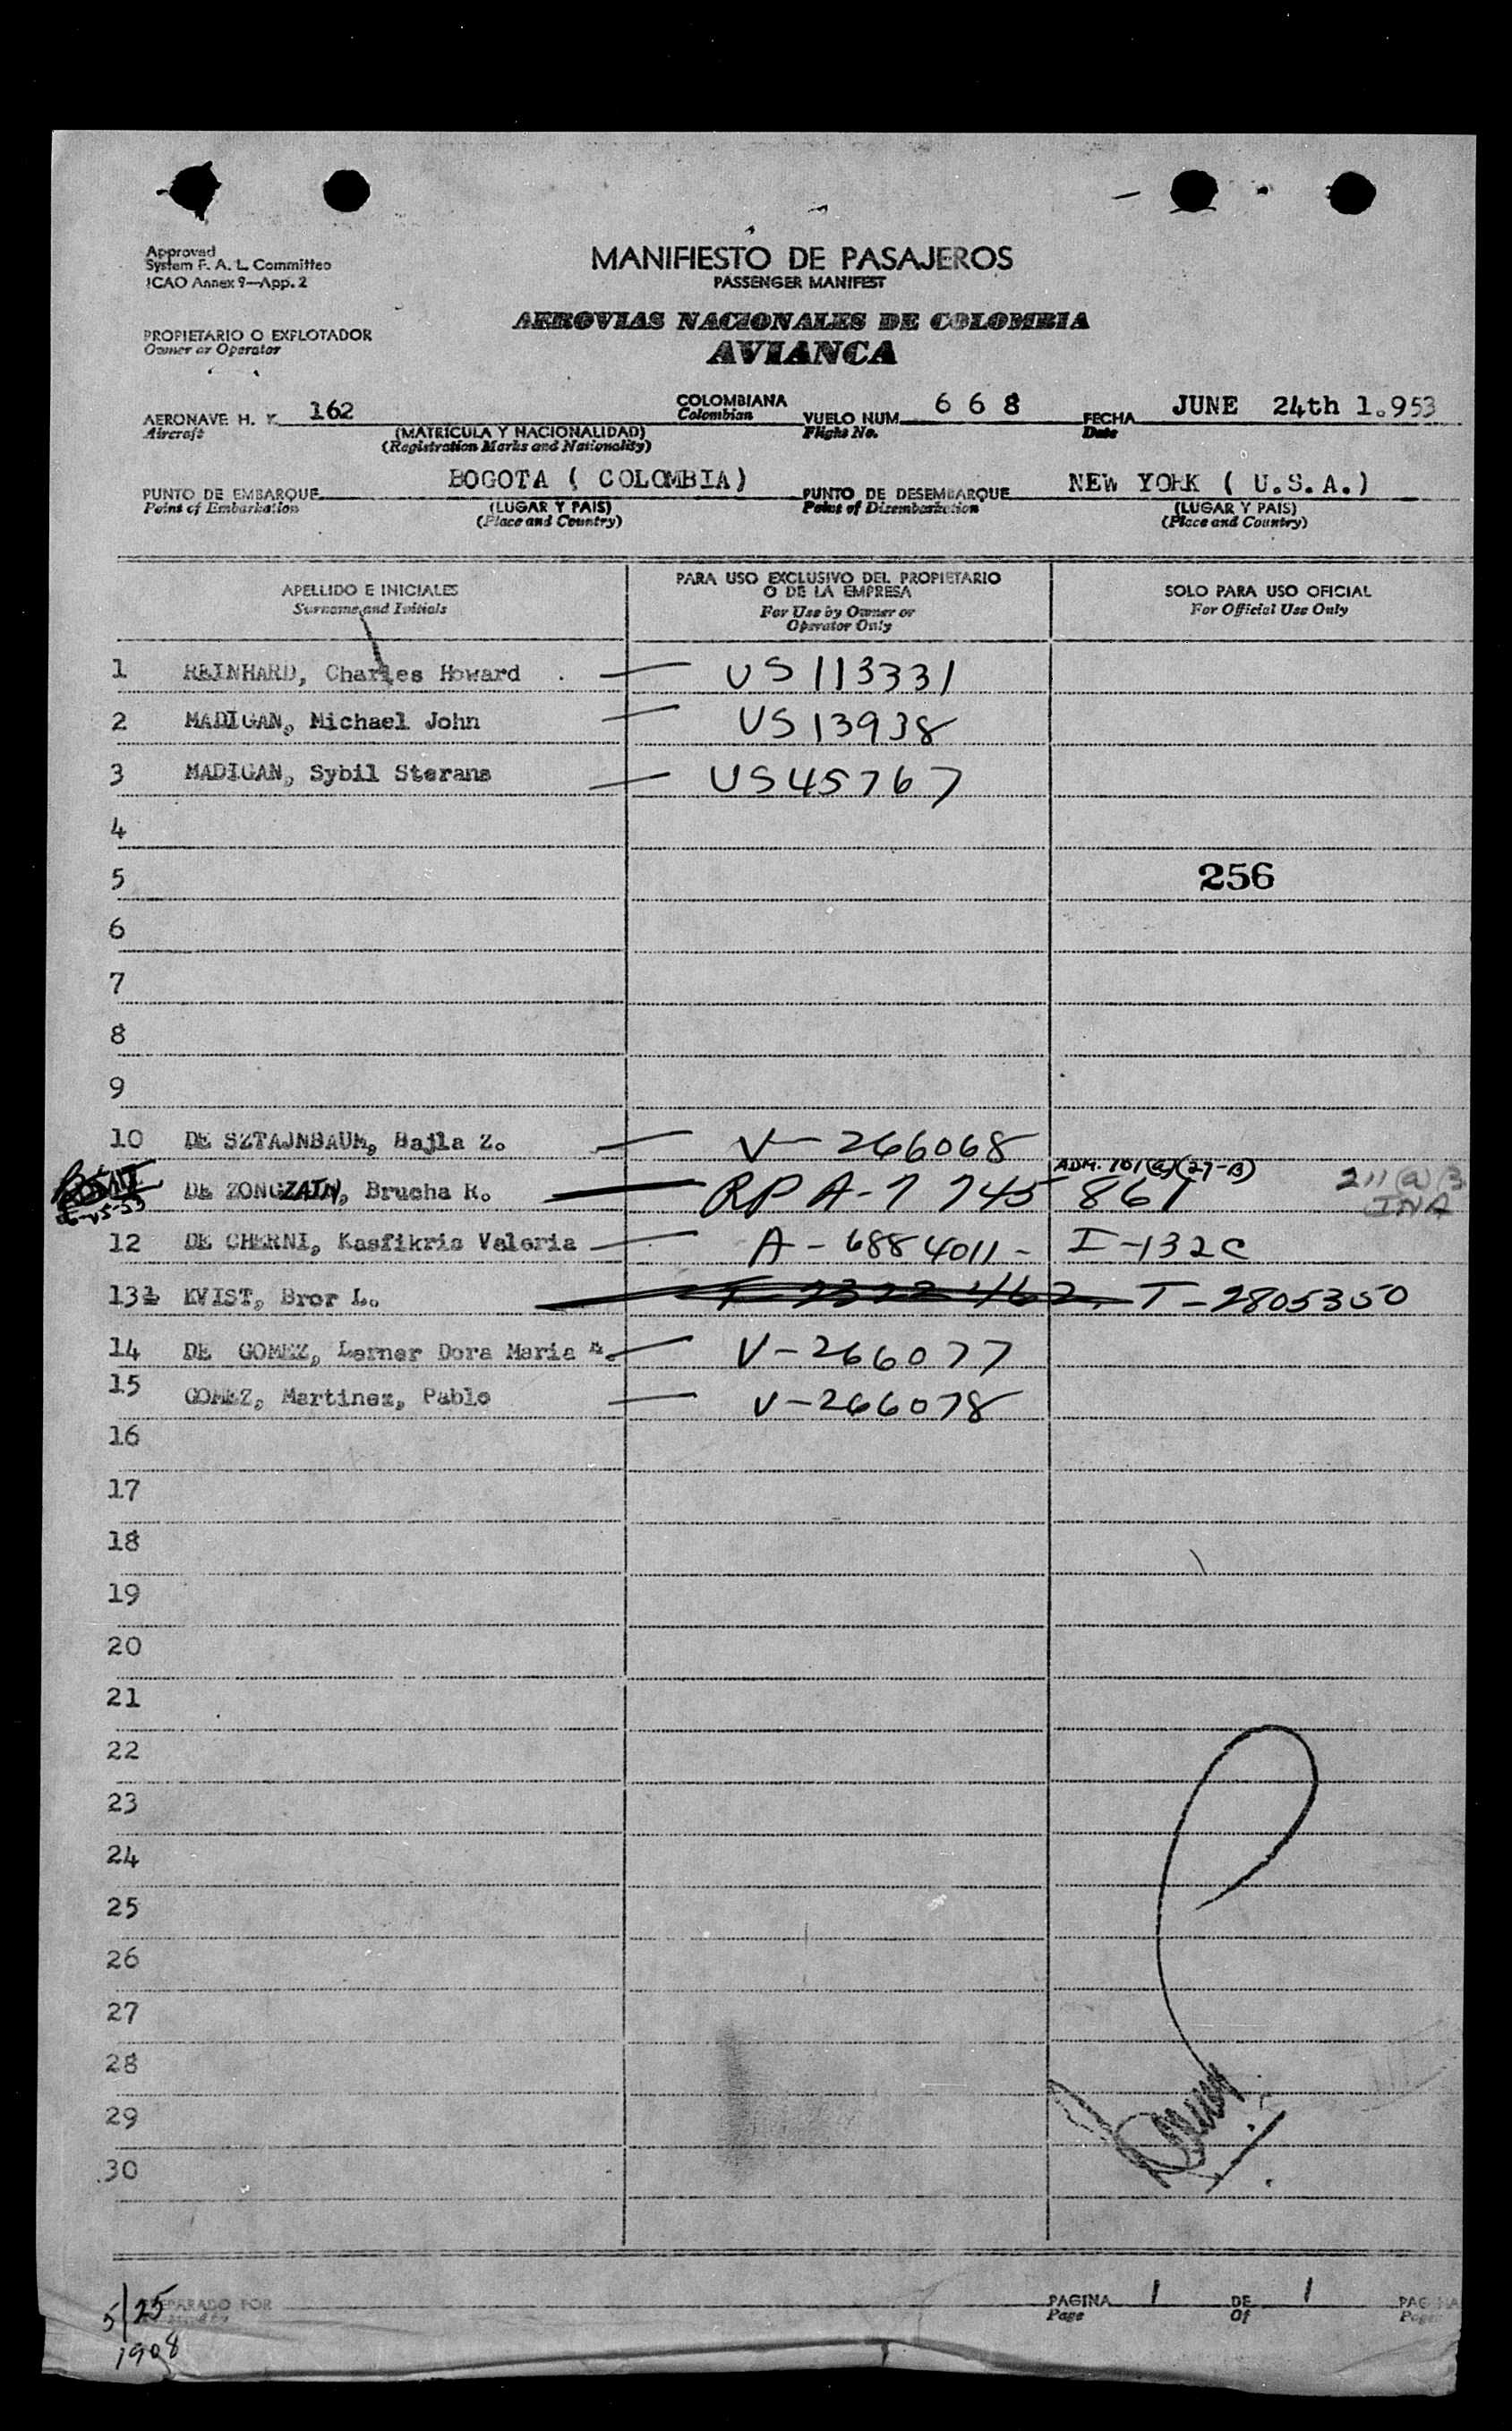 Approved
System F. A. L. Committee
ICAO Annex 9—App. 2
MANIFIESTO DE PASAJEROS
PASSENGER MANIFEST
AEROVIAS NACIONALES DE COLOMBIA
AVIANCA
PROPIETARIO O EXPLOTADOR
Owner or Operator
AERONAVE H. K. 162 COLOMBIANA VUELO NUM. 6 6 8 FECHA JUNE 24th 1.953
Aircraft (MATRICULA Y NACIONALIDAD) Colombian Flight No. Date
(Registration Marks and Nationality)
PUNTO DE EMBARQUE BOGOTA ( COLOMBIA) PUNTO DE DESEMBARQUE NEW YORK ( U.S.A.)
Point of Embarkation (LUGAR Y PAIS) Point of Disembarkation (LUGAR Y PAIS)
(Place and Country) (Place and Country)
APELLIDO E INICIALES PARA USO EXCLUSIVO DEL PROPIETARIO SOLO PARA USO OFICIAL
Surname and Initials O DE LA EMPRESA For Official Use Only
For Use by Owner or
Operator Only
1 REINHARD, Charles Howard . — US 113331
2 MADIGAN, Michael John — US 13938
3 MADIGAN, Sybil Sterans — US 45767
4
5 256
6
7
8
9
10 DE SZTAJNBAUM, Bajla Z. — V-266068
ADM. 101(a)(27-B)
DE ZONGZAIN, Brucha R. — RP A-7 745 861 211(a)(3
6-25-53 INA
12 DE CHERNI, Kasfikris Valeria — A-6884011- I-132C
13 KVIST, Bror L. T-2805350
14 DE GOMEZ, Lerner Dora Maria — V-266077
15 GOMEZ, Martinez, Pablo — V-266078
16
17
18
19
20
21
22
23
24
25
26
27
28
29
30
5/25 PREPARADO POR PAGINA 1 DE 1 PAGINA
Page Of Page
1908